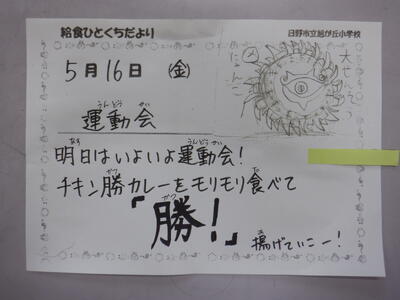 給食ひとくちだより
日野市立旭が丘小学校
5月16日 (金)
うんどうかい
運動会
あす うんどうかい
明日はいよいよ運動会!
かつ た
チキン勝カレーをモリモリ食べて
かつ
「勝!」
あ
揚げていこー!